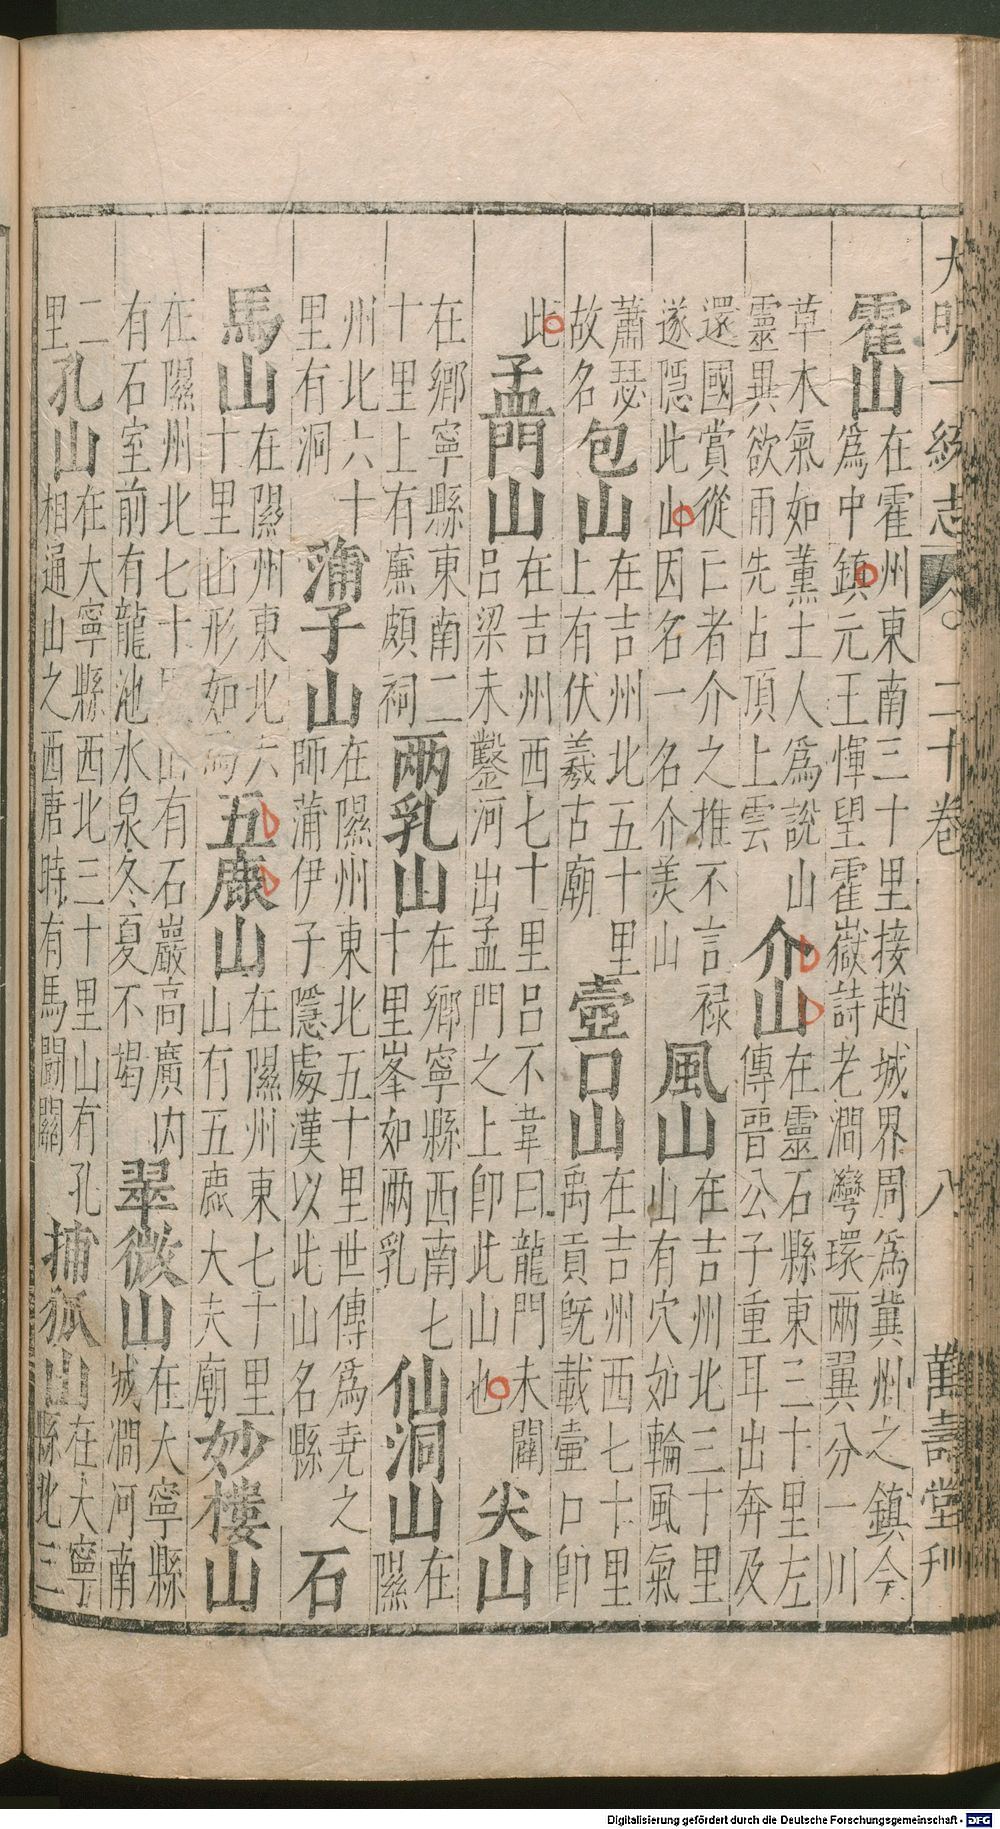 大明一統志 二十卷 八 萬壽堂刊
霍山在霍州東南三十里接趙城界周為冀州之鎮今為中鎮元王惲望霍嶽詩老澗灣環兩翼分一川
草木氣如薰土人為說山靈異欲雨先占頂上雲介山在靈石縣東三十里左傳晉公子重耳出奔及
還國賞從亡者介之推不言祿遂隱此山因名一名介美山風山在吉州北三十里山有穴如輪風氣
蕭瑟故名包山在吉州北五十里上有伏羲古廟壺口山在吉州西七十里禹貢既載壺口即
此孟門山在吉州西七十里呂不韋曰龍門未闢呂梁未鑿河出孟門之上即此山也尖山
在鄉寧縣東南二十里上有廉頗祠兩乳山在鄉寧縣西南七十里峯如兩乳仙洞山在隰
州北六十里有洞蒲子山在隰州東北五十里世傳為堯之師蒲伊子隱處漢以此山名縣石
馬山在隰州東北六十里山形如馬五鹿山在隰州東七十里山有五鹿大夫廟妙樓山
在隰州北七十山有石巖高廣內有石室前有龍池水泉冬夏不竭翠微山在大寧縣城澗河南
二里孔山在大寧縣西北三十里山有孔相通山之西唐時有馬鬭關捕狐山在大寧縣北三
Digitalisierung gefördert durch die Deutsche Forschungsgemeinschaft - DFG